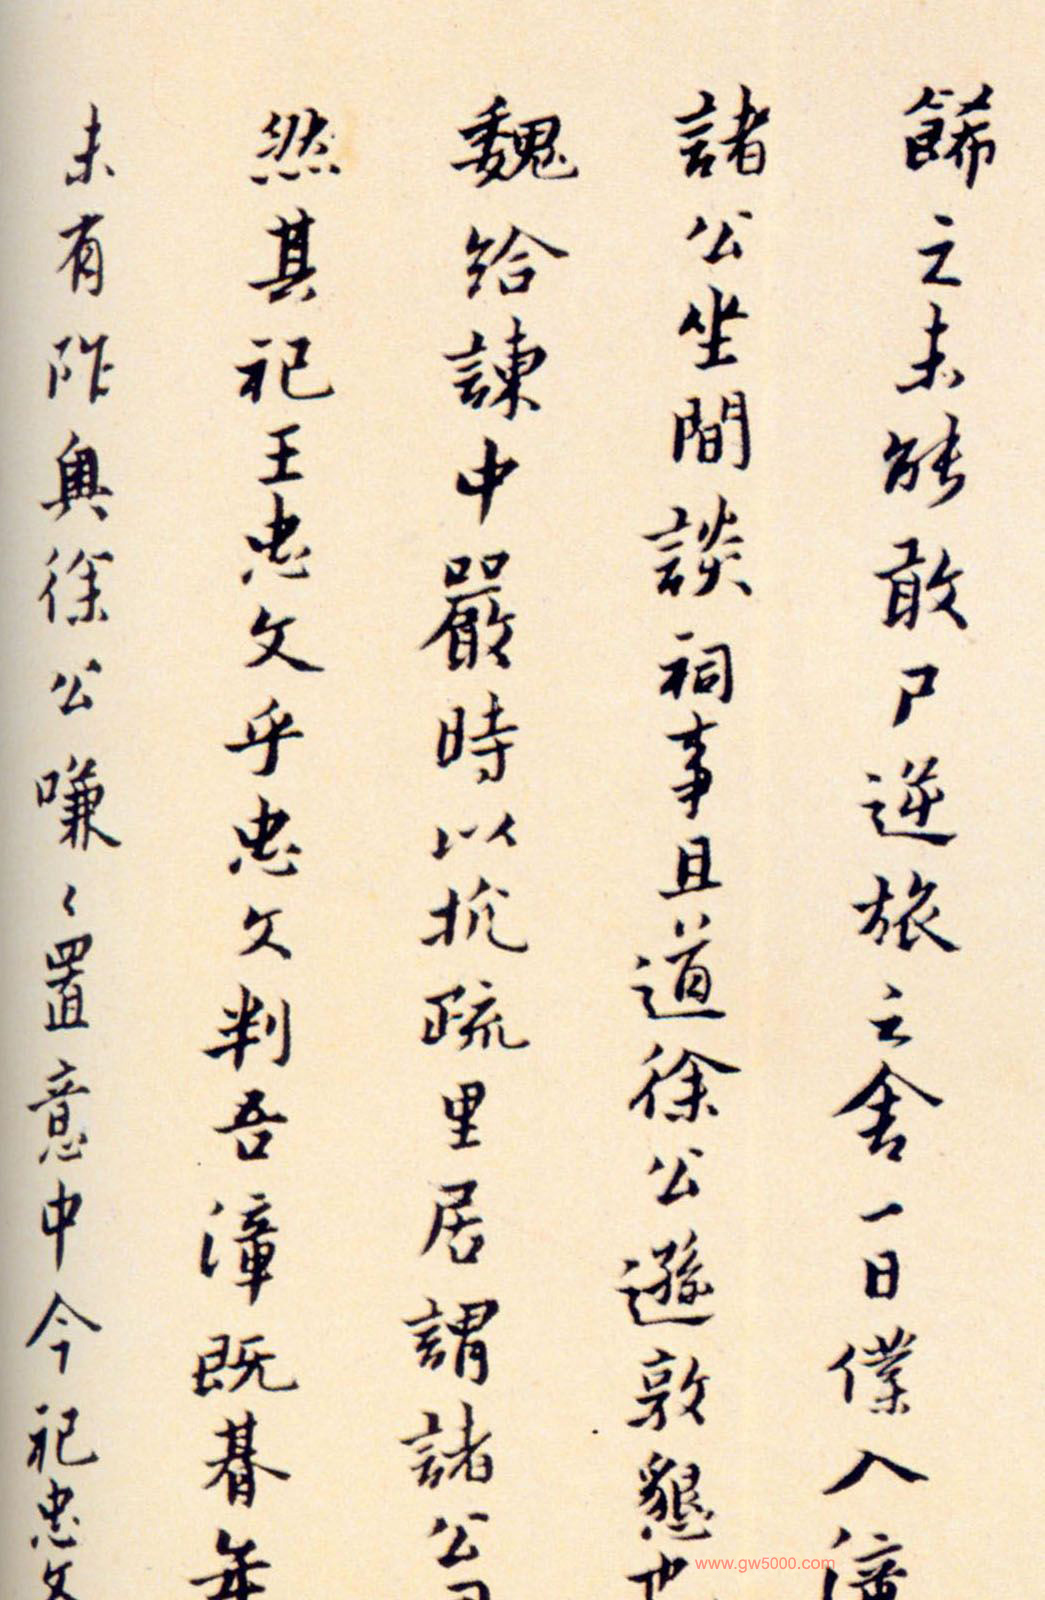 餙之未能敢尸逆旅之舍一日僕入漳
諸公坐間談祠事且道徐公遜敦懇也
魏給諫中嚴時以抗疏里居謂諸公
然其祀王忠文乎忠文判吾漳既朞年
未有阼輿徐公嗛々置意中今祀忠文
www.gw5000.com